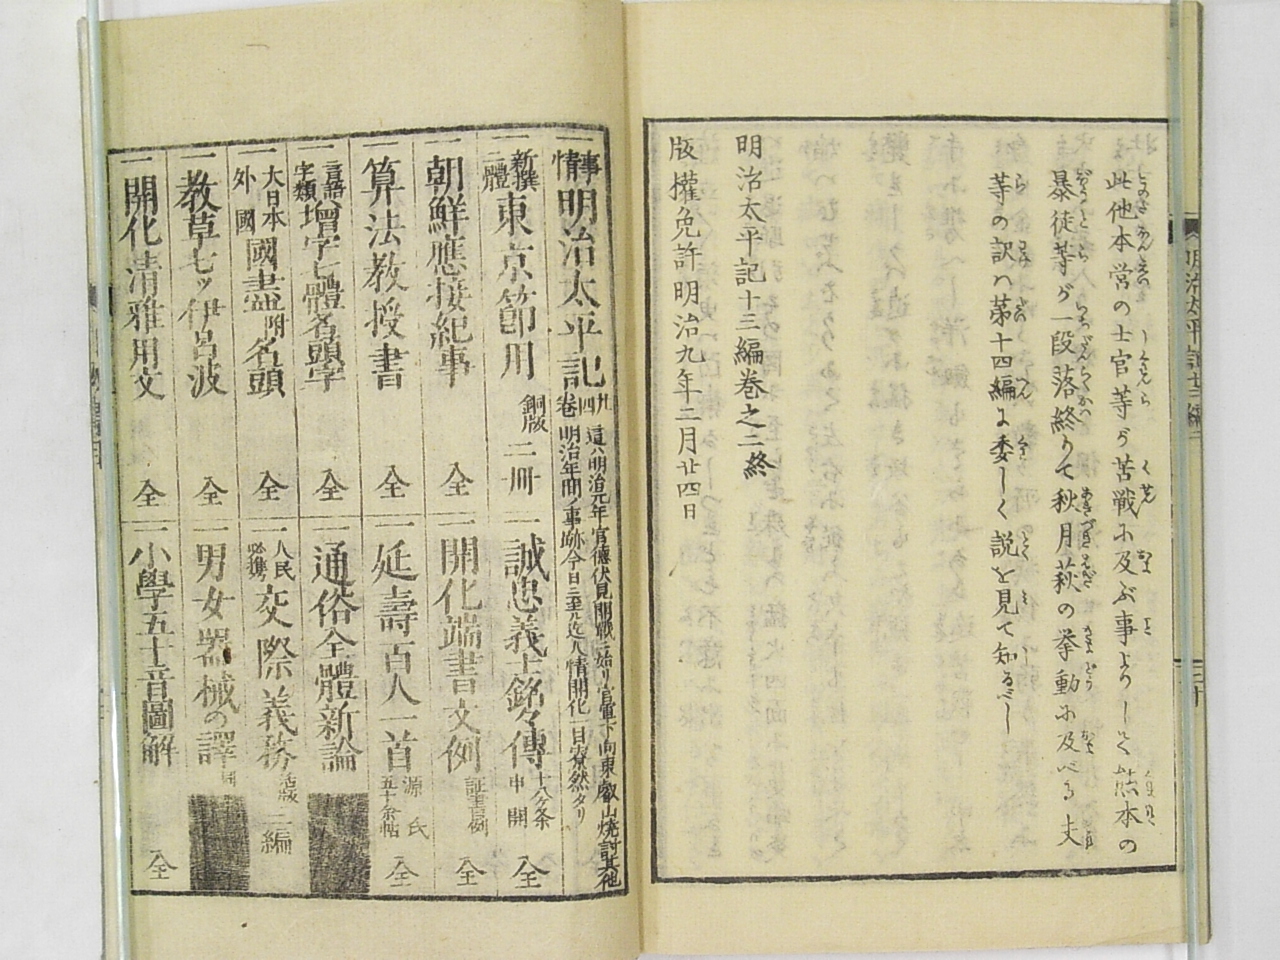 此他本営の士官等が苦戦に及ぶ事よりして熊本の
暴徒等が一段落終りて秋月萩の挙動に及べる丈
等の訳ハ第十四編に委しく説を見て知るべし
明治太平記十三編巻之二終
版權免許明治九年二月廿四日
明治太平記十三編二
三十
一事情明治太平記 九四巻 這ハ明治元年官德伏見開戦ニ始リ官軍下向東叡山焼討其他明治年間ノ事跡今日ニ至ル迄人情開化一目寮然タリ
一新撰二體東京節用 銅版 二冊
一朝鮮應接紀事 全
一算法教授書 全
一言語字類増字七體名頭字 全
一大日本外國國盡附名頭 全
一教草七ッ伊呂波 全
一開化清雅用文 全
一誠忠義士銘々傳 十八ケ条申開 全
一開化端書文例 証書例 全
一延壽百人一首 源氏五十余帖 全
一通俗全體新論
一人民必携交際義務 活版 三編
一男女器械の譯
一小學五十音圖解 全